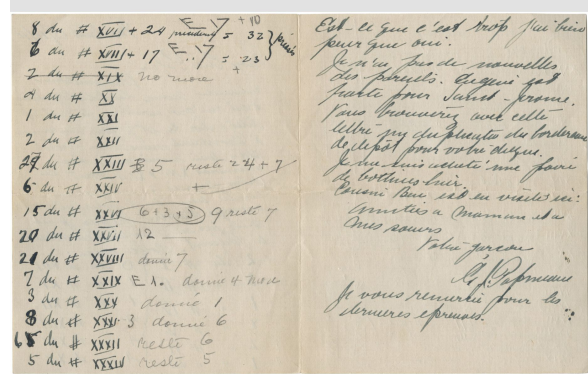 8 du # XVII + 24 = 32
6 du # XVIII + 17 = 23
2 du # XIX no more
4 du # XX
1 du # XXI
2 du # XXII
29 du # XXIII 5 reste 24 + 7
6 du # XXIV +
15 du # XXVI 6+3+5 9 reste 7
20 du # XXVII 12
21 du # XXVIII donné 7
7 du # XXIX E 1. donné 4
3 du # XXX donné 1
8 du # XXXI 3 donné 6
du # XXXII reste 6
5 du # XXXIV reste 5
Est-ce que c'est trop j'ai bien
peur que oui.
Je n'ai pas de nouvelles
des pareils. est
partie pour Saint-Jerome.
Vous trouverez avec cette
lettre du bordereau
de dépot pour votre
Je me suis acheté une paire
de bottines hier.
Cousin est en visite ici.
Amitiés à Maman et à
mes soeurs
Votre garçon
J. Papineau
Je vous remercie pour les
dernieres epreuves.